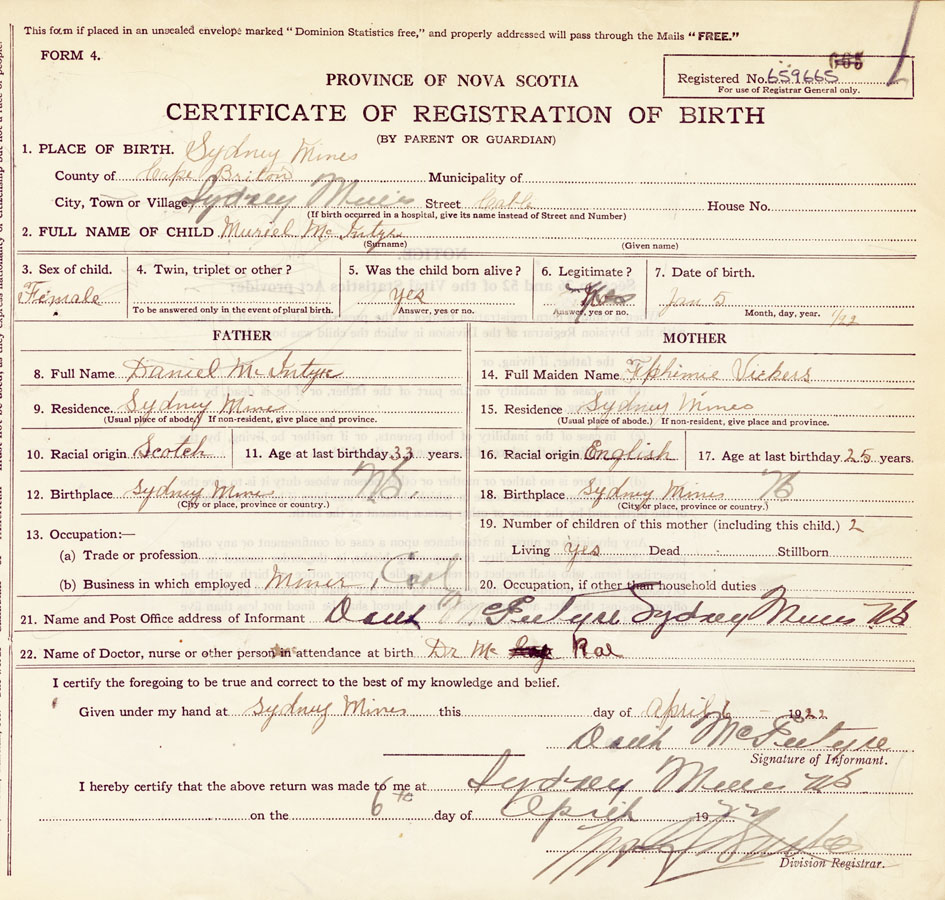 This form if placed in an unsealed envelope marked "Dominion Statistics free," and properly addressed will pass through the Mails "FREE."
FORM 4.
665
PROVINCE OF NOVA SCOTIA
Registered No. 659665
For use of Registrar General only.
CERTIFICATE OF REGISTRATION OF BIRTH
(BY PARENT OR GUARDIAN)
1. PLACE OF BIRTH. Sydney Mines
County of Cape Briton Municipality of
City, Town or Village Sydney Mines Street House No.
(If birth occurred in a hospital, give its name instead of Street and Number)
2. FULL NAME OF CHILD Muriel McIntyre
(Surname) (Given name)
3. Sex of child. 4. Twin, triplet or other? 5. Was the child born alive? 6. Legitimate? 7. Date of birth.
Female Yes Yes Jan 5 1922
To be answered only in the event of plural birth. Answer, yes or no. Answer, yes or no. Month, day, year.
FATHER MOTHER
8. Full Name Daniel McIntyre
14. Full Maiden Name Ephimie Vickers
9. Residence. Sydney Mines
15. Residence Sydney Mines
(Usual place of abode.) If non-resident, give place and province.
(Usual place of abode.) If non-resident, give place and province.
10. Racial origin Scotch 11. Age at last birthday 33 years.
16. Racial origin English 17. Age at last birthday 25 years.
12. Birthplace Sydney Mines NS.
18. Birthplace Sydney Mines NS
(City or place, province or country.)
(City or place, province or country.)
13. Occupation:—
19. Number of children of this mother (including this child.) 2
(a) Trade or profession
Living yes Dead Stillborn
(b) Business in which employed Miner, Coal
20. Occupation, if other than household duties
21. Name and Post Office address of Informant McIntyre Sydney Mines NS
22. Name of Doctor, nurse or other person in attendance at birth Dr Mc Rae
I certify the foregoing to be true and correct to the best of my knowledge and belief.
Given under my hand at Sydney Mines this day of April 6 1922
McIntyre
Signature of Informant.
I hereby certify that the above return was made to me at Sydney Mines NS
on the 6th day of April 1922
Division Registrar.